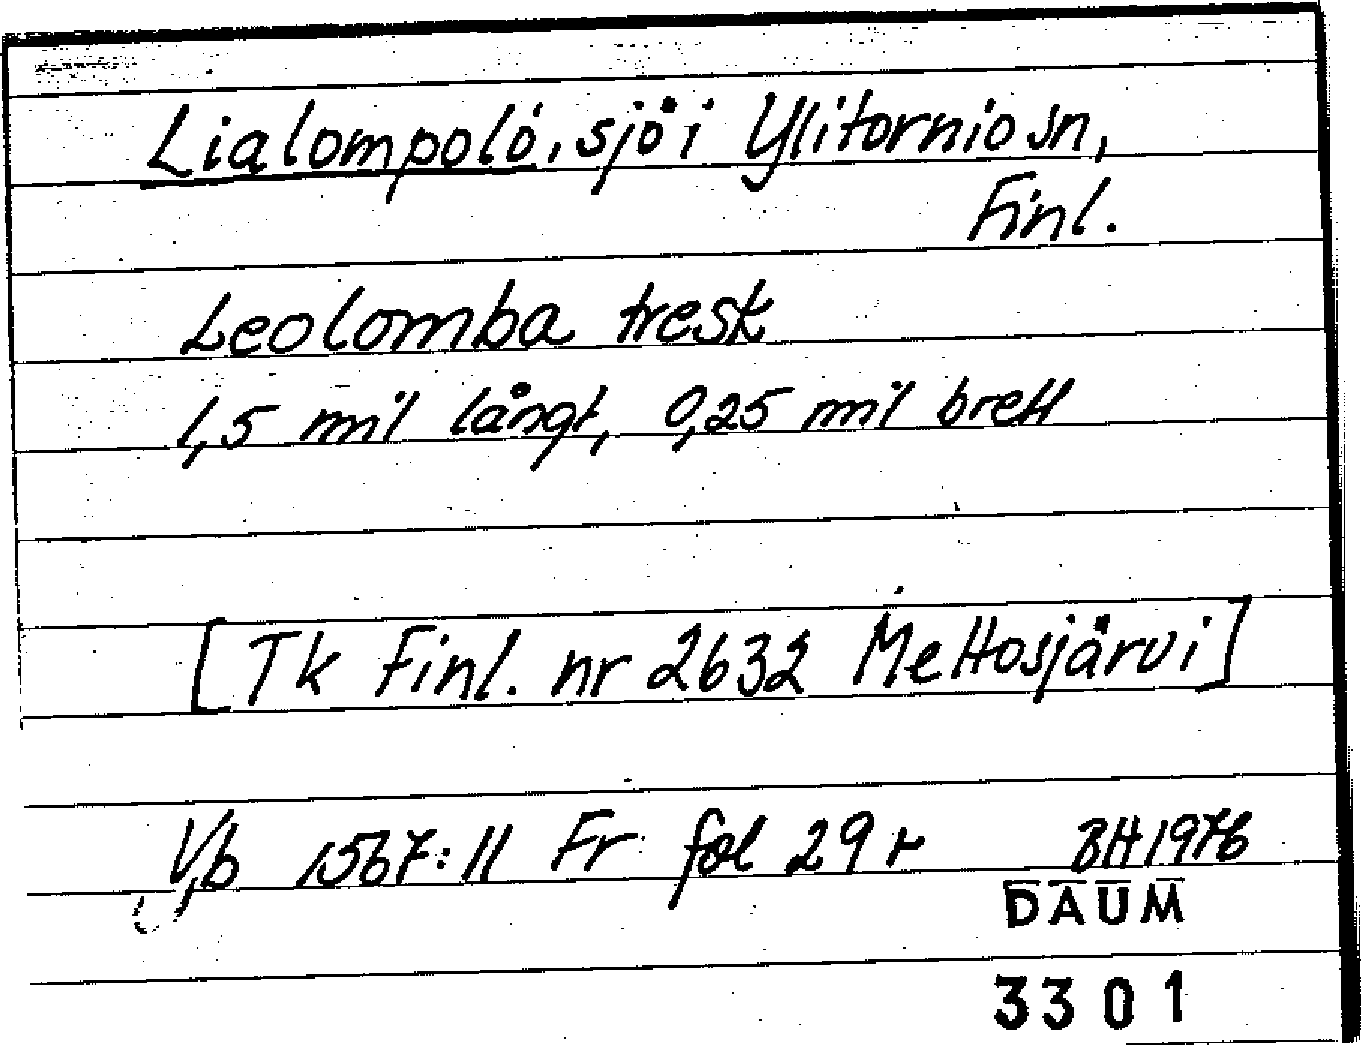 Lialompolo, sjö i Ylitornio sn,
Finl.
Leolomba tresk
1,5 mil långt, 0,25 mil brett
[Tk Finl. nr 2632 Mettosjärvi]
Vb 1567:11 Fr fol 29 r BH 1976
DAUM
3301